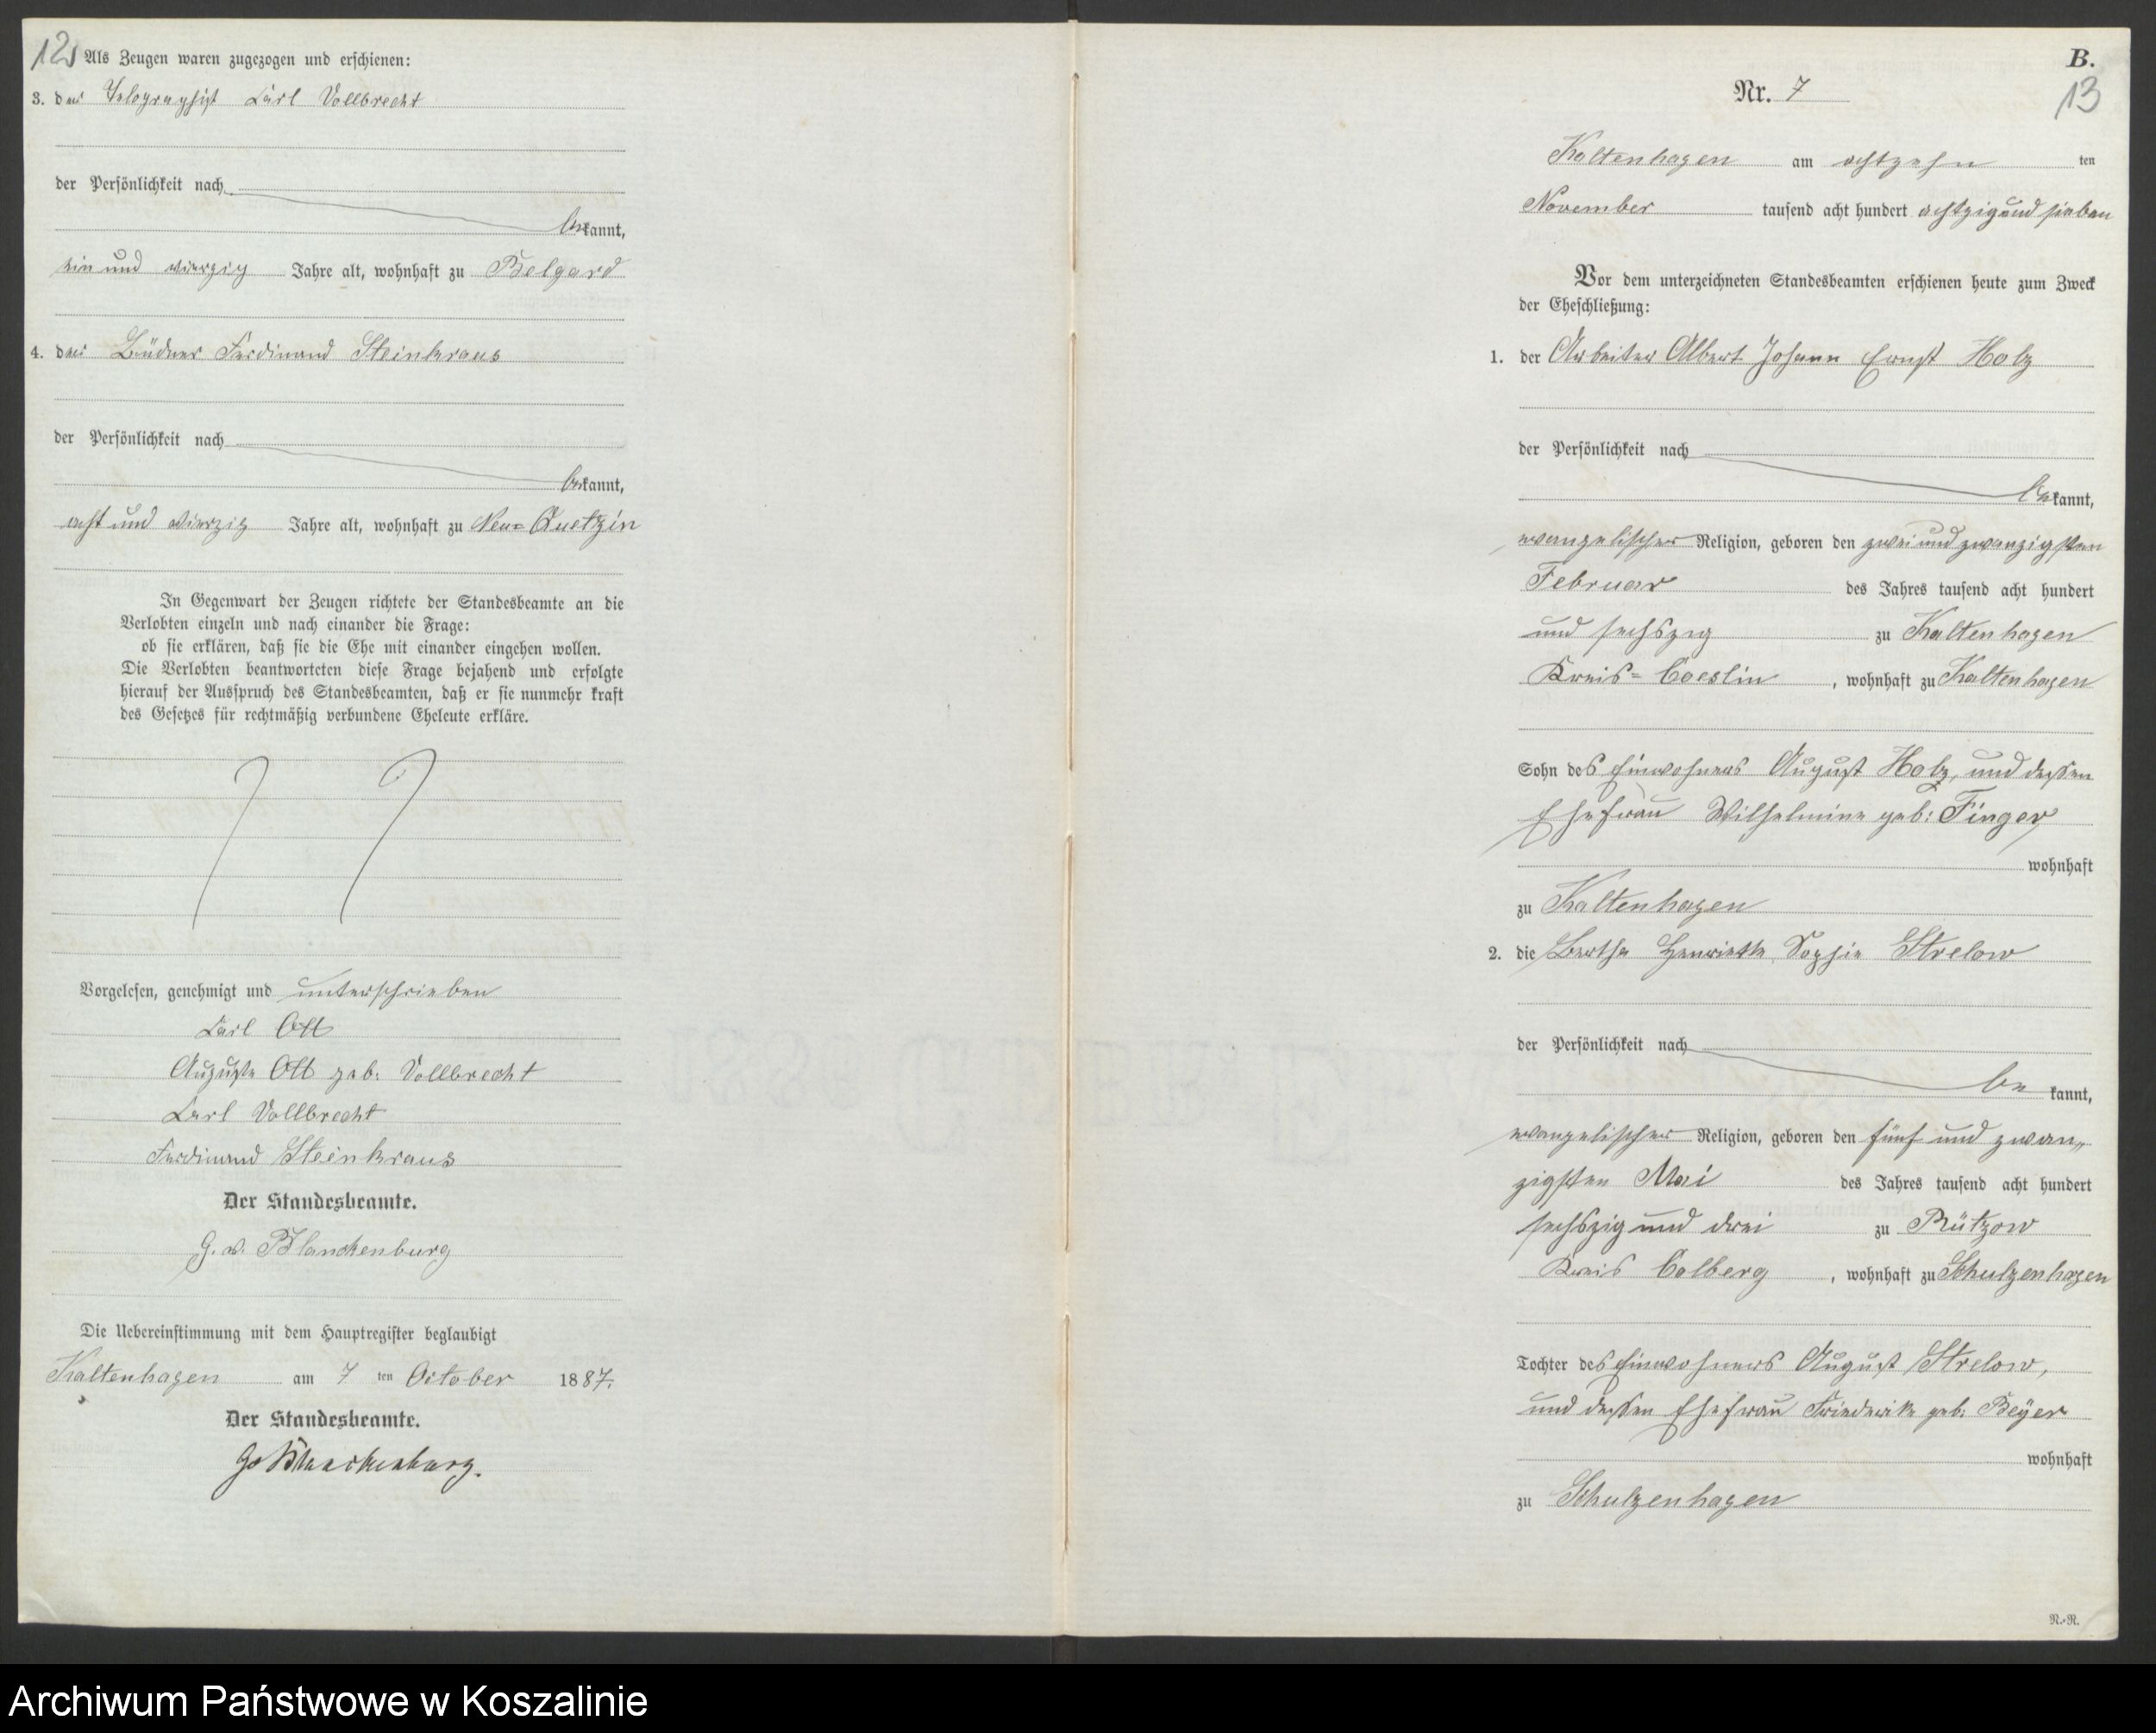 12
Als Zeugen waren zugezogen und erschienen:
3. der Telegraphist Carl Vollbrecht
der Persönlichkeit nach
bekannt,
ein und vierzig Jahre alt, wohnhaft zu Belgard
4. der Büdner Ferdinand Steinkraus
der Persönlichkeit nach
bekannt,
acht und vierzig Jahre alt, wohnhaft zu Neu=Quetzin
In Gegenwart der Zeugen richtete der Standesbeamte an die
Verlobten einzeln und nach einander die Frage:
ob sie erklären, daß sie die Ehe mit einander eingehen wollen.
Die Verlobten beantworteten diese Frage bejahend und erfolgte
hierauf der Ausspruch des Standesbeamten, daß er sie nunmehr kraft
des Gesetzes für rechtmäßig verbundene Eheleute erkläre.
Vorgelesen, genehmigt und unterschrieben
Carl Ott
Auguste Ott geb. Vollbrecht
Carl Vollbrecht
Ferdinand Steinkraus
Der Standesbeamte.
G. v. Blanckenburg
Die Uebereinstimmung mit dem Hauptregister beglaubigt
Kaltenhagen am 7 ten October 1887.
Der Standesbeamte.
Gv Blanckenburg.
B.
13
Nr. 7
Kaltenhagen am achtzehn ten
November tausend acht hundert achtzigund sieben
Vor dem unterzeichneten Standesbeamten erschienen heute zum Zweck
der Eheschließung:
1. der Arbeiter Albert Johann Ernst Holz
der Persönlichkeit nach
bekannt,
evangelischer Religion, geboren den zwei und zwanzigsten
Februar des Jahres tausend acht hundert
und sechszig zu Kaltenhagen
Kreis= Coeslin, wohnhaft zu Kaltenhagen
Sohn des Einwohners August Holz, und dessen
Ehefrau Wilhelmine geb: Finger
wohnhaft
zu Kaltenhagen
2. die Bertha Henriette Sophie Strelow
der Persönlichkeit nach
be kannt,
evangelischer Religion, geboren den fünf und zwan„
zigsten Mai des Jahres tausend acht hundert
sechszig und drei zu Rützow
Kreis Colberg, wohnhaft zu Schulzenhagen
Tochter des Einwohners August Strelow,
und dessen Ehefrau Friederike geb: Beÿer
wohnhaft
zu Schulzenhagen
R.-R.
Archiwum Państwowe w Koszalinie